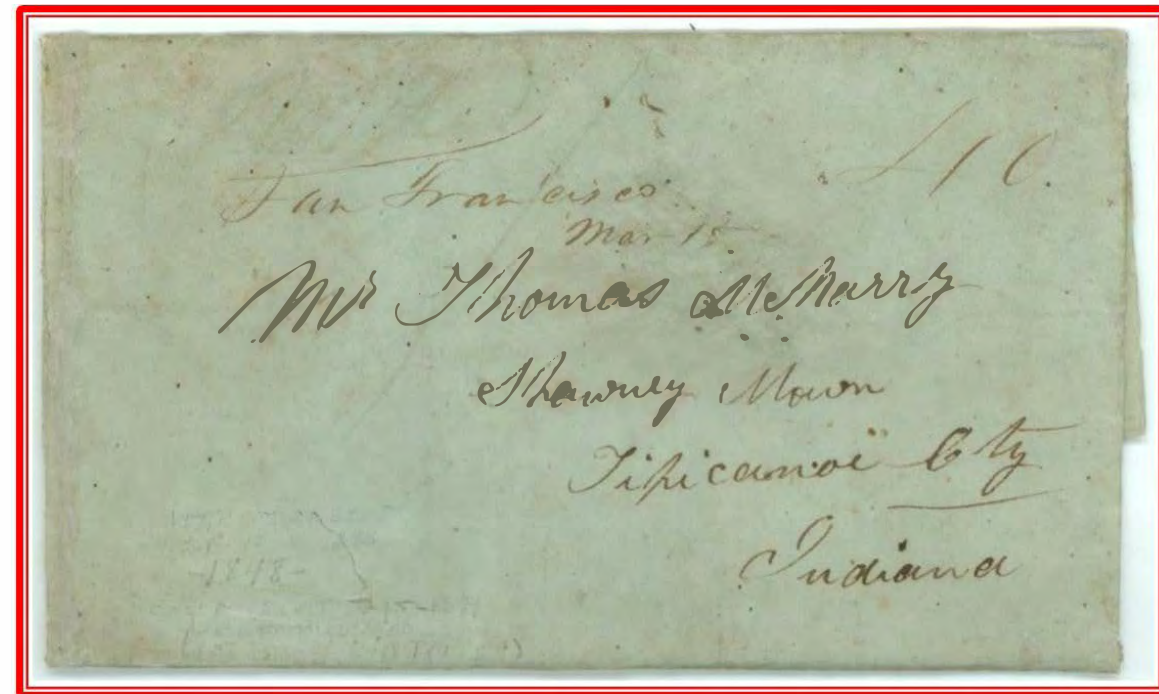 San Francisco
Mar 15
Mr Thomas McMurry
Shawney Mown
Tipicanoe Cty
Indiana
-1848-